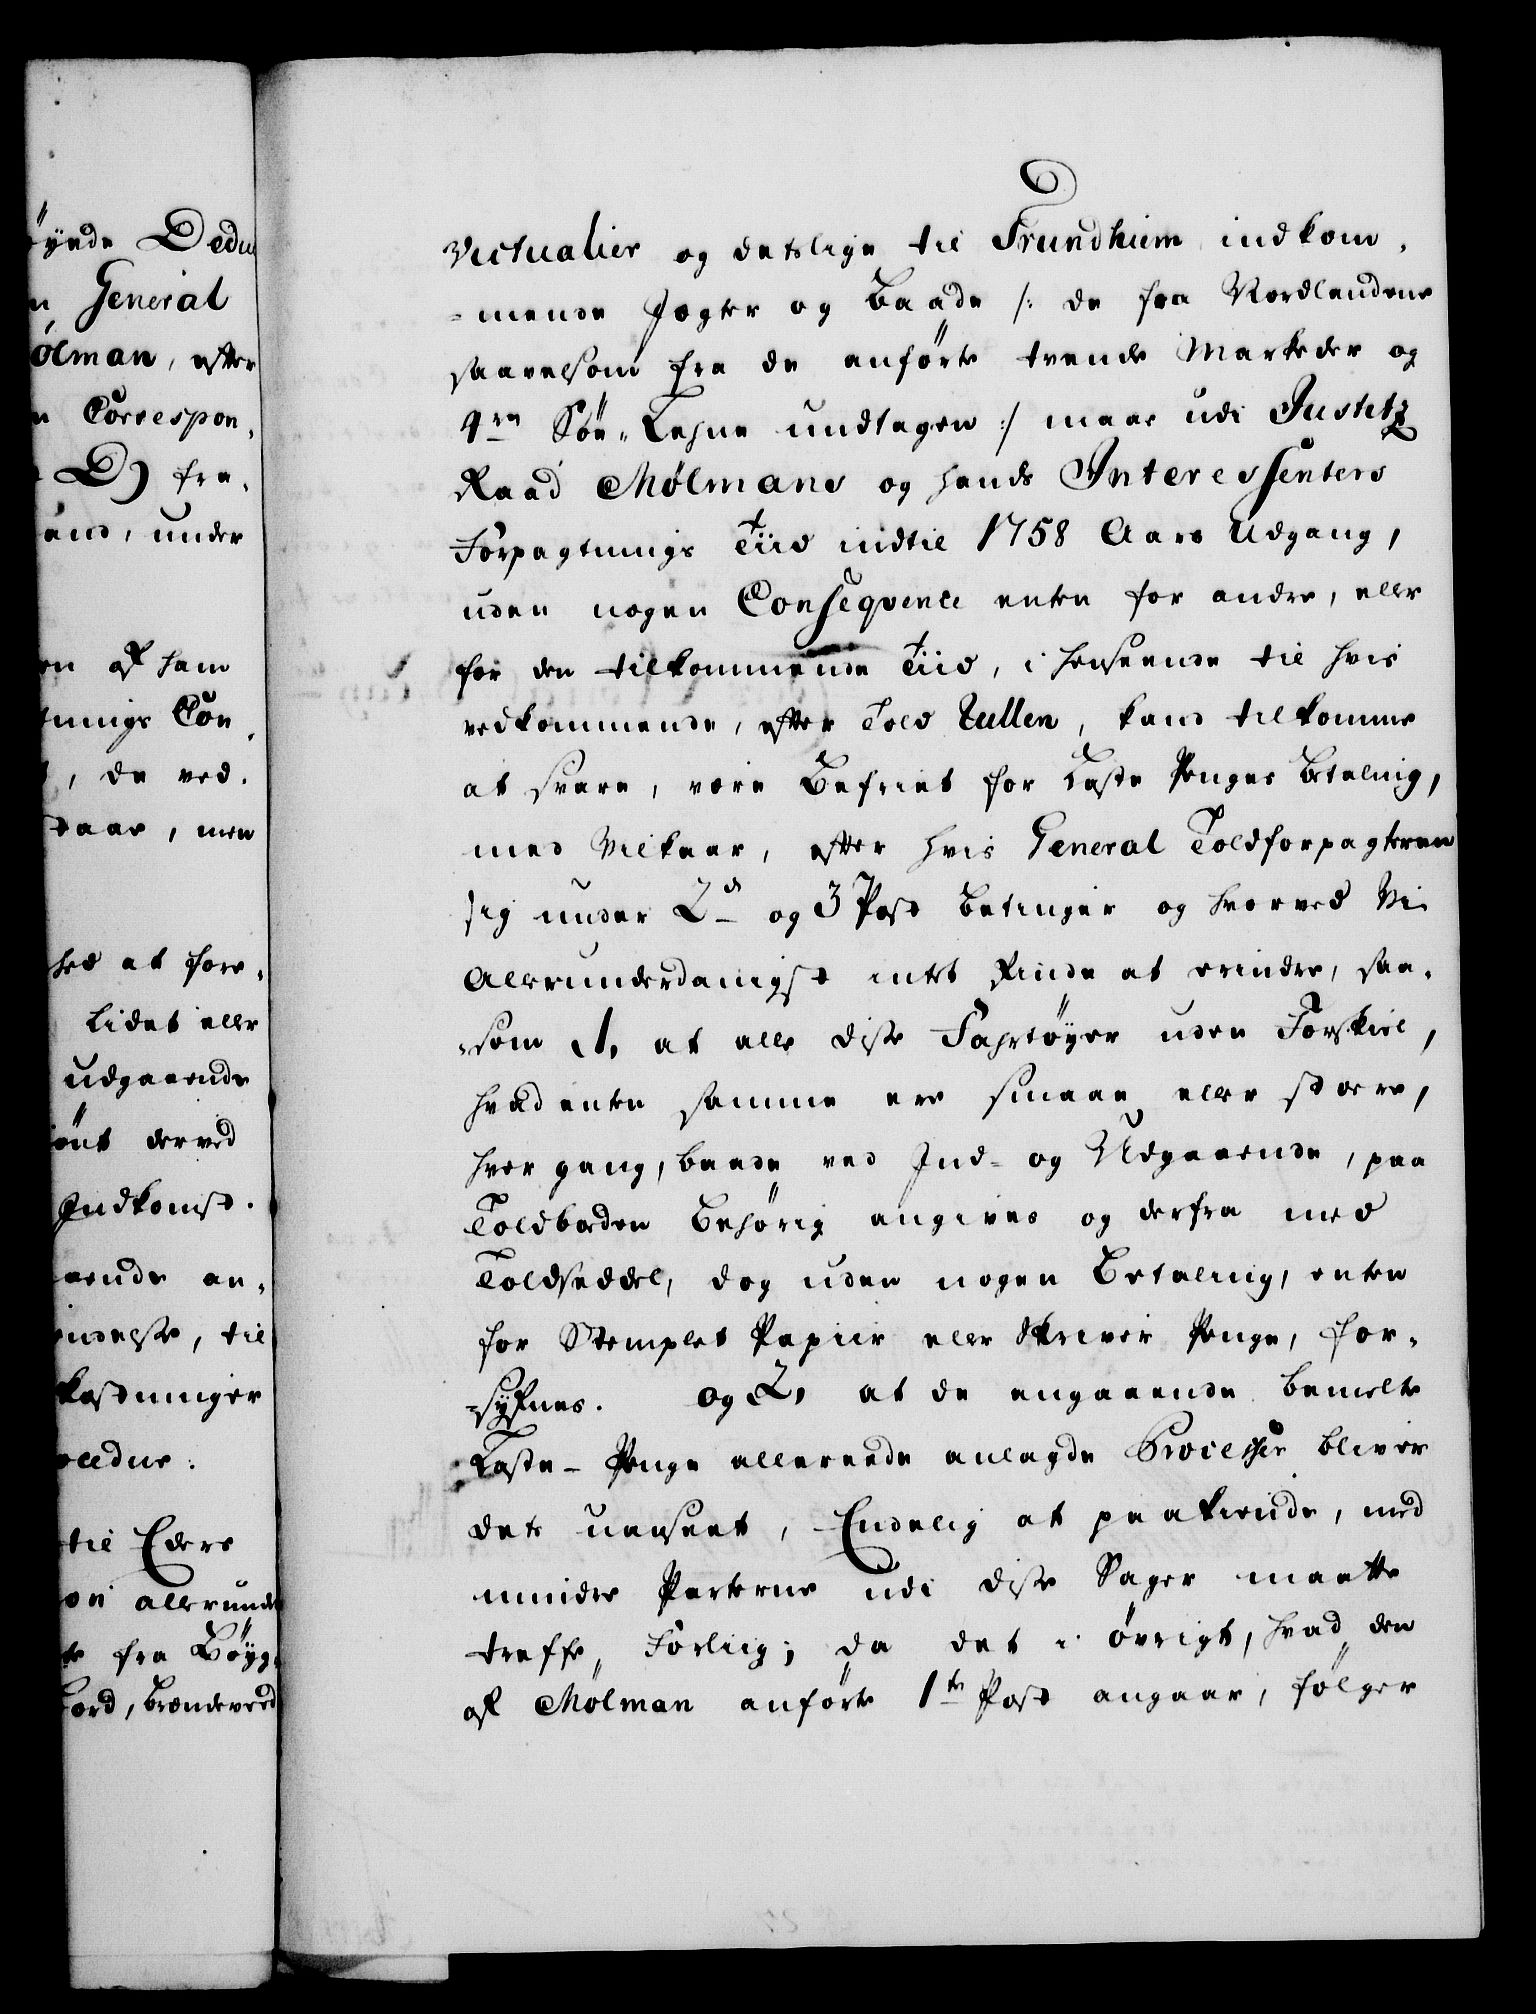 øyede Dedu
General
ølman, efter
Correspon,
D) fra,
und, under
en af ham
tnings Con,
, de ved,
daar, men
hed at fore,
lidet eller
udgaaende
ønt derved
Indkomst.
aaende an,
endelse, til
kostninger
cedue:
til Eders
on allerund
te fra Bøyg,
Bord, Brændeveed
Victualier og deslige til Trundhiem indkom,
=mende Jagter og Baade /: de fra Nordlandene
saavelsom fra de anførte trende Markeder og
4re Søe-Lehne undtagen :/ maae udi Justitz
Raad Mølmans og hands Interessenters
Forpagtnings Tiid indtil 1758 Aars Udgang,
uden nogen Conseqvence enten for andre, eller
for den tilkommende Tiid, i henseende til hvis
vedkommende, efter Told Rullen, kand tilkomme
at svare, være Befriet for Laste Penges Betaling,
med Vilkaar, efter hvis General Toldforpagteren
sig under 2d og 3 Post betinger og hvorved Vi
Allerunderdanigst intet finde at erindre, saa,
=som 1, at alle disse Fahrtøyer uden Forskiel,
hvad enten samme ere smaae eller større,
hver gang, baade ved Ind- og Udgaaende, paa
Toldboden behørig angives og derfra med
Toldseddel, dog uden nogen Betaling, enten
for Stemplet Papiir eller Skriver Penge, for,
=syfnes. og 2, at de angaaende bemelte
Laste-Penge allereede anlagde Processer bliver
dets uanseet, Endelig at paakiende, med
mindre Parterne udi disse Sager maatte
treffe Forliig; da det i øvrigt, hvad den
af Mølman anførte 1te Post angaar, følger